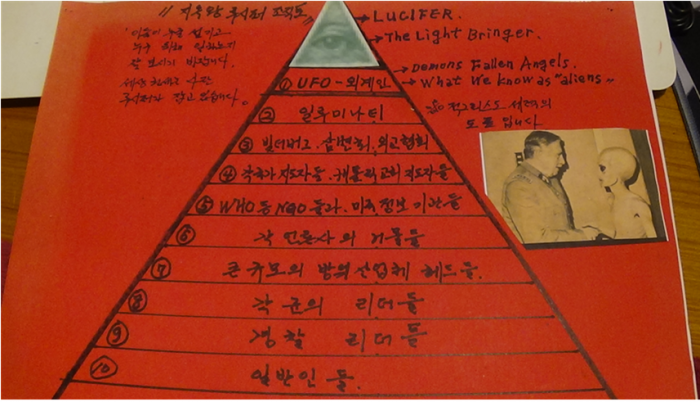 루시퍼 조직도
LUCIFER.
The Light Bringer.
이들이 누굴 섬기고
일하는지
잘 보시기 바랍니다.
루시퍼가 잡고 있습니다.
Demons Fallen Angels.
What we know as "aliens"
적그리스도 세력의
도표 입니다
① UFO - 외계인
② 일루미나티
③ 빌더버그, 삼변회, 외교협회
④ 각국가 지도자들, 캐톨릭교회 지도자들
⑤ WHO 등 NGO 들과, 미국 정보기관들
⑥ 각 언론사의 거물들
⑦ 큰 규모의 방위산업체 헤드들.
⑧ 각 군의 리더들
⑨ 경찰 리더들
⑩ 일반인들.